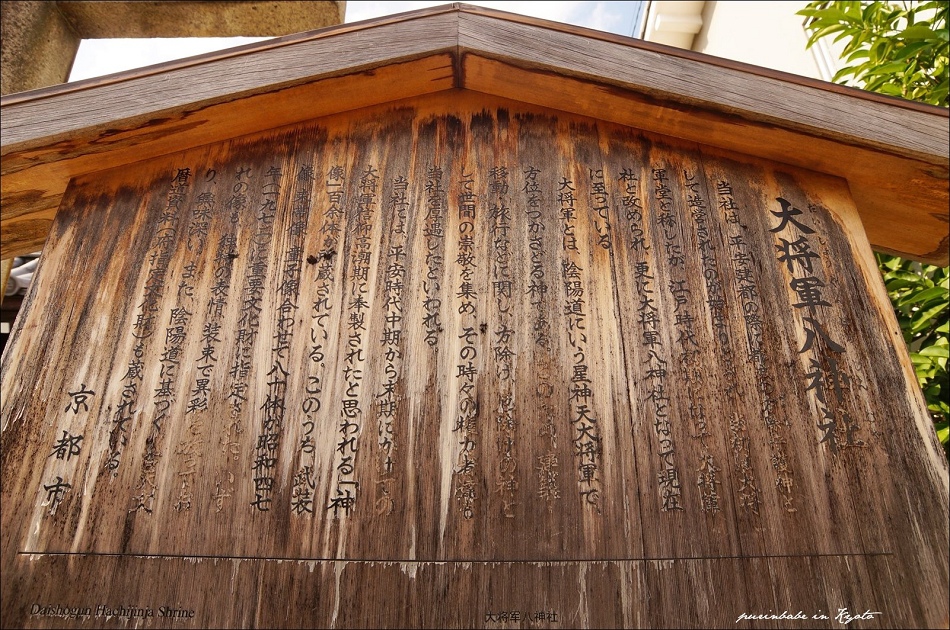 大将軍八神社
当社は、平安建都の際に
して造営されたのが
軍堂と称したが、江戸時代 大将軍
社と改められ、更に大将軍八神社となって現在
に至っている。
大将軍とは、陰陽道にいう星神天大将軍で、
方位をつかさどる神である。
移動、旅行などに関し、方除け、厄除けの神と
して世間の崇敬を集め、その時々の権力者
当社を厚遇したといわれる。
当社には、平安時代中期から末期にかけての
大将軍信仰高潮期に奉製されたと思われる「神
像」百余体が蔵されている。このうち、武装
像、 像、童子像合わせて八十体が昭和四七
年(一九七二)に重要文化財に指定
れの像も、独特の表情、装束で異彩
り、興味深い。また、陰陽道に基づく
暦道 (府指定文化財)も蔵されている。
京都市
Daishogun Hachijinja Shrine
大将军八神社
purinbabe in Kyoto